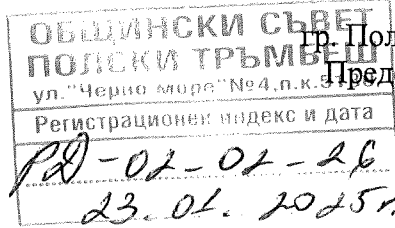 ОБЩИНСКИ СЪВЕТ
гр. Пол
ПОЛСКИ ТРЪМБЕШ
Пред
ул."Черно море"№4,п.к.
Регистрационен индекс и дата
РД-02-02-26
23.01.2025г.